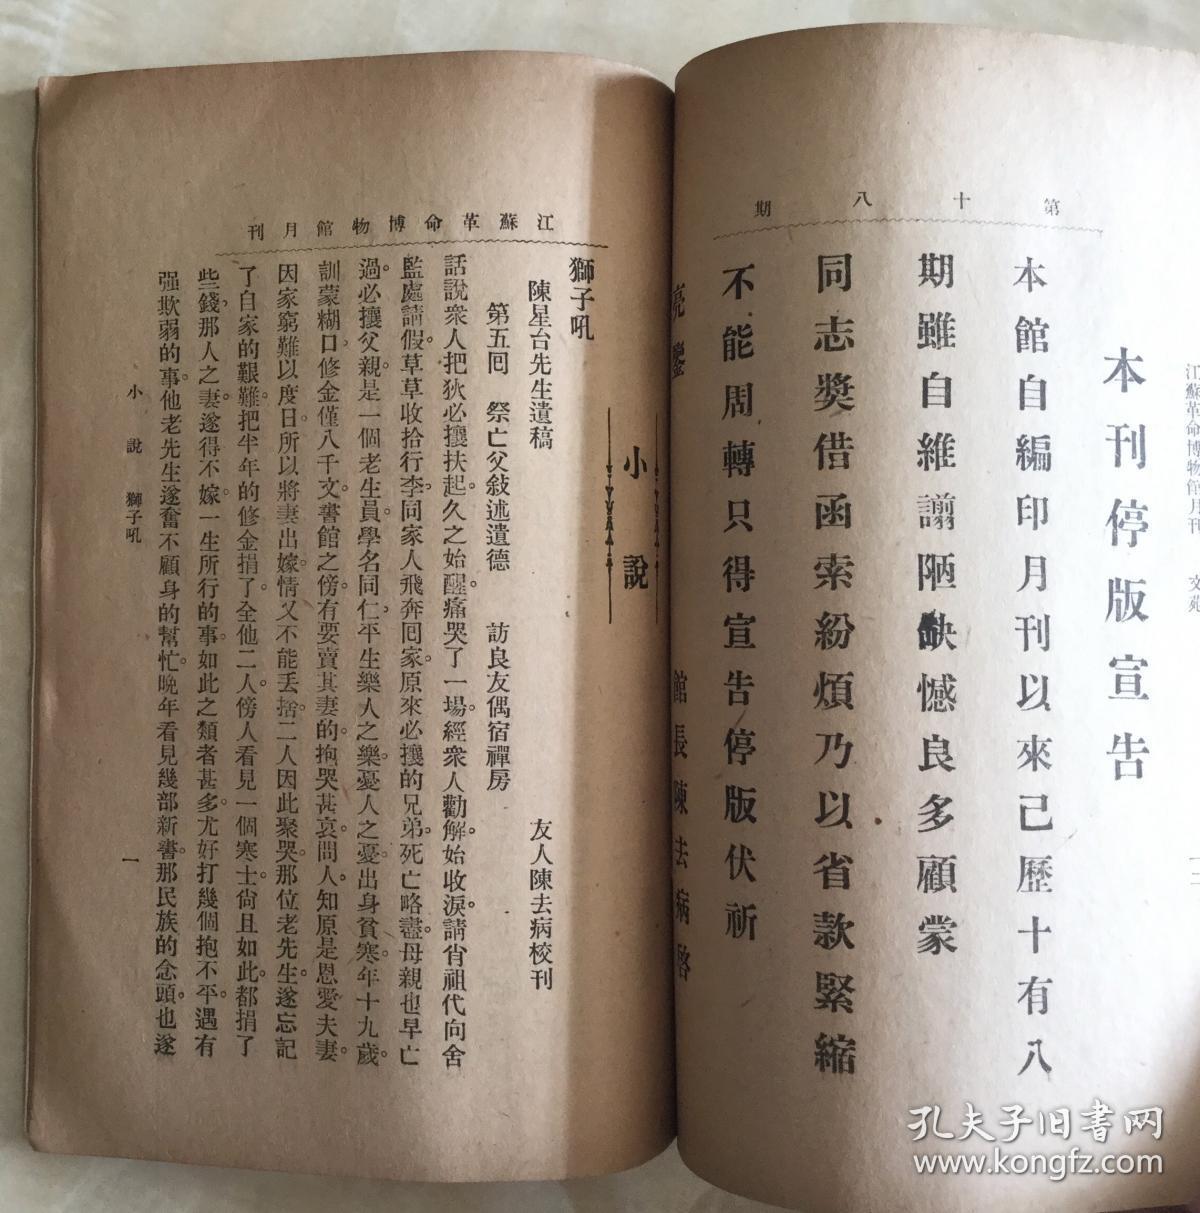 江蘇革命博物館月刊　文苑
一三
第十八期
本刊停版宣告
本館自編印月刊以來己歷十有八
期雖自維譾陋缺憾良多顧蒙
同志獎借函索紛煩乃以省款緊縮
不能周轉只得宣告停版伏祈
亮鑒　館長陳去病啓
江蘇革命博物館月刊
小說
獅子吼
陳星台先生遺稿　友人陳去病校刊
第五回　祭亡父敍述遺德　訪良友偶宿禪房
話說衆人把狄必攘扶起久之始醒痛哭了一場經衆人勸解始收淚請肖祖代向舍
監處請假草草收拾行李同家人飛奔回家。原來必攘的兄弟死亡略盡母親也早亡
過。必攘父親是一個老生員學名同仁平生樂人之樂憂人之憂出身貧寒。年十九歲。
訓蒙糊口修金僅八千文。書館之傍有要賣其妻的抱哭甚哀問人。知原是恩愛夫妻。
因家窮難以度日。所以將妻出嫁情又不能丢捨二人因此聚哭那位老先生遂忘記
了自家的艱難把半年的修金捐了。全他二人。傍人看見一個寒士尙且如此。都捐了
些錢那人之妻遂得不嫁。一生所行的事如此之類者甚多。尤好打幾個抱不平。遇有
强欺弱的事他老先生遂奮不顧身的幫忙。晚年看見幾部新書。那民族的念頭。也遂
小說　獅子吼
一
孔夫子旧書网
www.kongfz.com